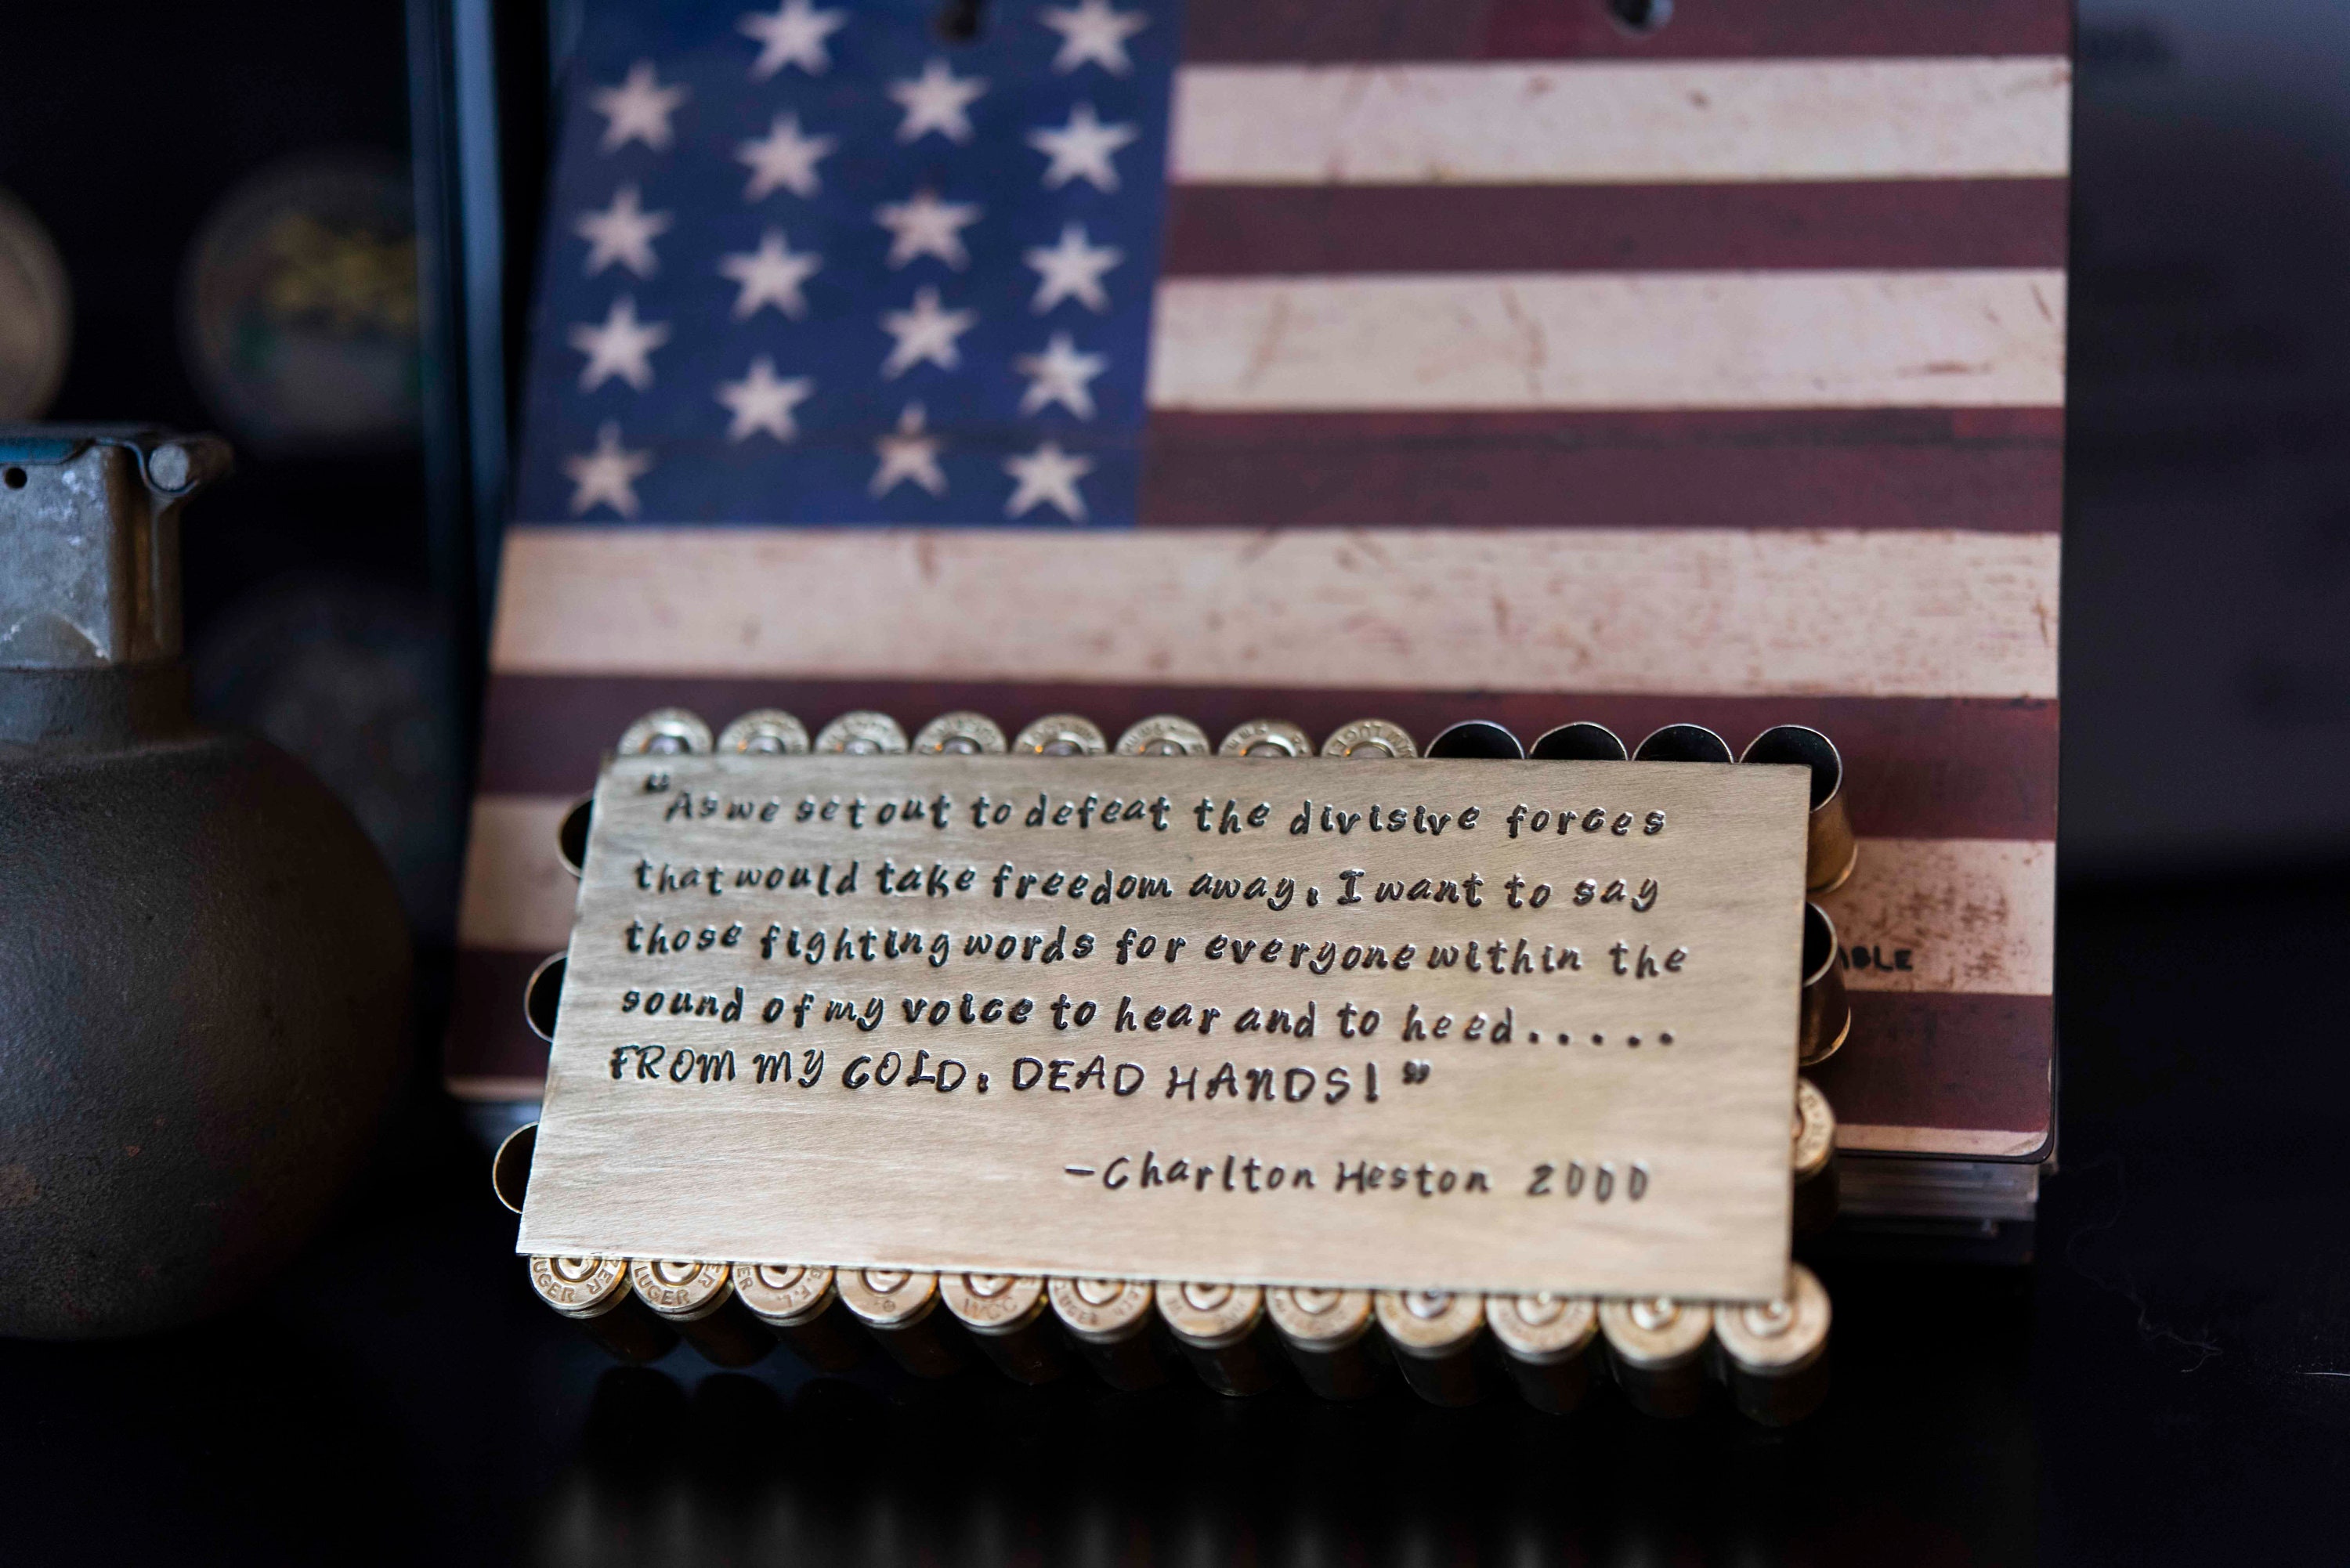 ABLE
“As we set out to defeat the divisive forces
that would take freedom away, I want to say
those fighting words for everyone within the
sound of my voice to hear and to heed.....
FROM MY COLD, DEAD HANDS!”
—Charlton Heston 2000
UGER
LUGER
WCC